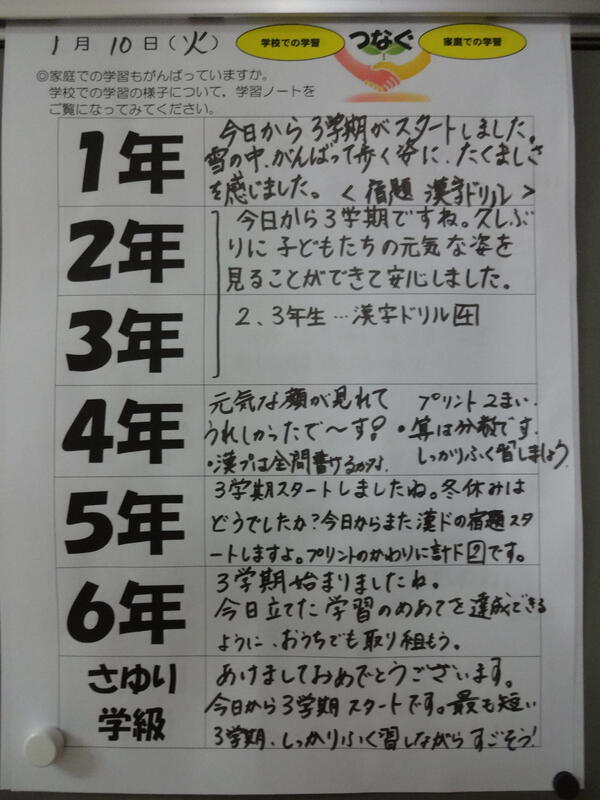 1月10日(火)
学校での学習
つなぐ
家庭での学習
◎家庭での学習もがんばっていますか。
学校での学習の様子について,学習ノートを
ご覧になってみてください。
1年
今日から3学期がスタートしました。
雪の中、がんばって歩く姿に、たくましさ
を感じました。<宿題 漢字ドリル>
2年
今日から3学期ですね。久しぶ
りに子どもたちの元気な姿を
見ることができて安心しました。
3年
2、3年生…漢字ドリル4
4年
元気な顔が見れて
うれしかったで〜す!
・漢プは全問書けるかな。
プリント2まい.
・算は分数です.
しっかりふく習しましょう.
5年
3学期スタートしましたね。冬休みは
どうでしたか?今日からまた漢ドの宿題スタ
ートしますよ。プリントのかわりに計ド2です。
6年
3学期始まりましたね。
今日立てた学習のめあてを達成できる
ように、おうちでも取り組もう。
さゆり
学級
あけましておめでとうございます。
今日から3学期スタートです。最も短い
3学期、しっかりふく習しながらすごそう!